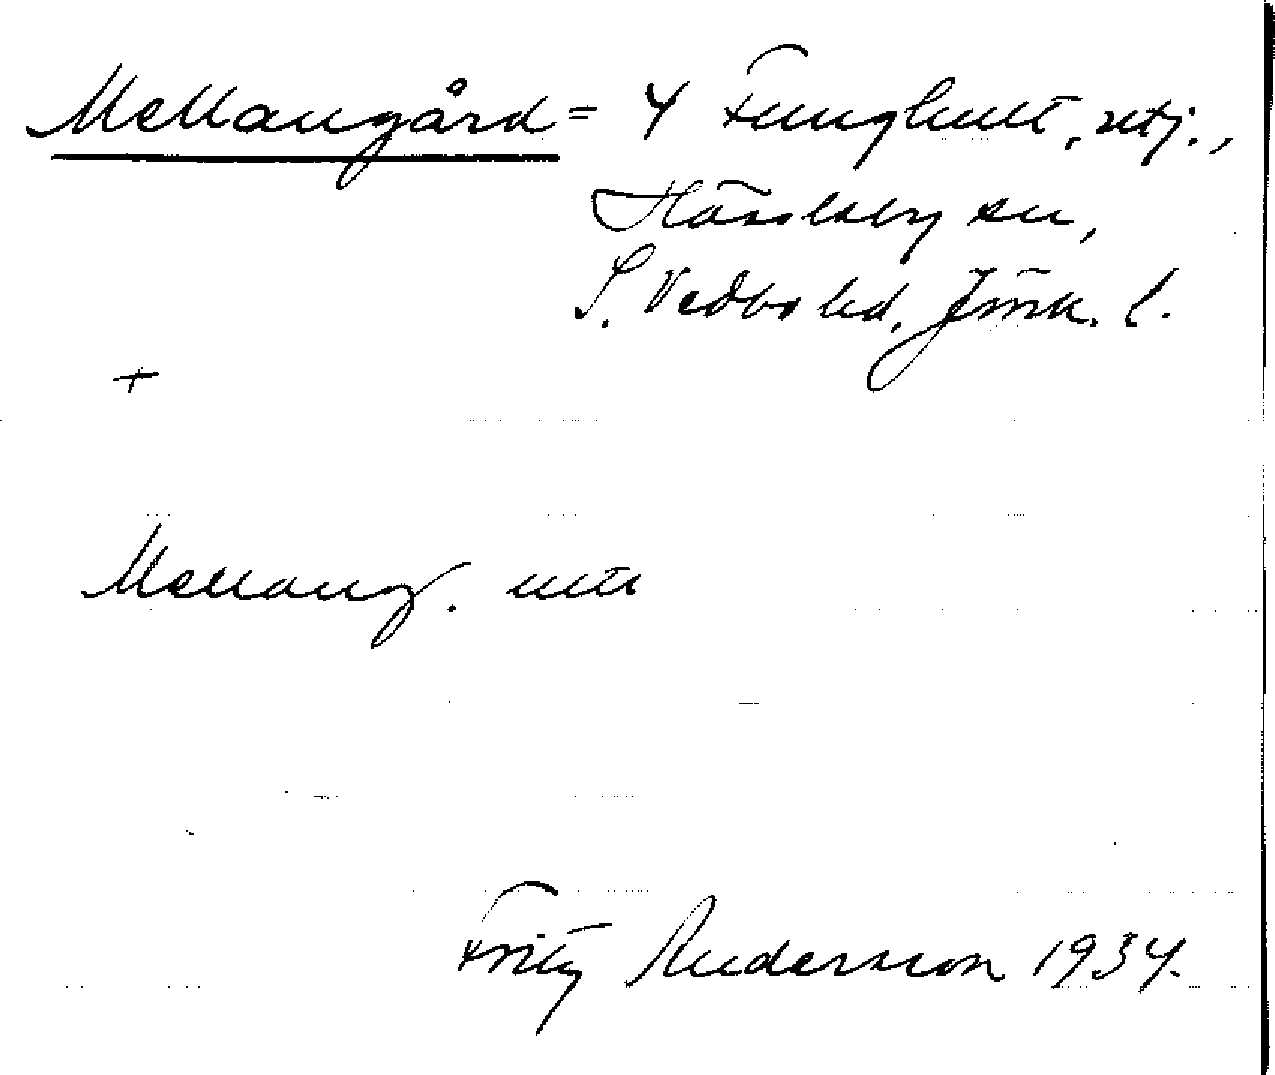 Mellangård = 4 Funghult, utj.,
Hässleby sn,
S. Vedbo hd, Jönk. l.
+
Mellang.
Fritz Andersson 1934.